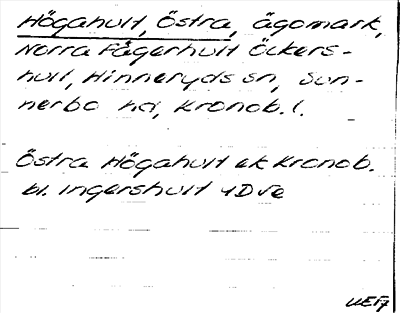 Högahult, Östra, ägomark,
Norra Fågerhult Öckers-
hult, Hinneryds sn, Sun-
nerbo hd, Kronob. l.
Östra Högahult ek Kronob.
bl. Ingershult 4D7e